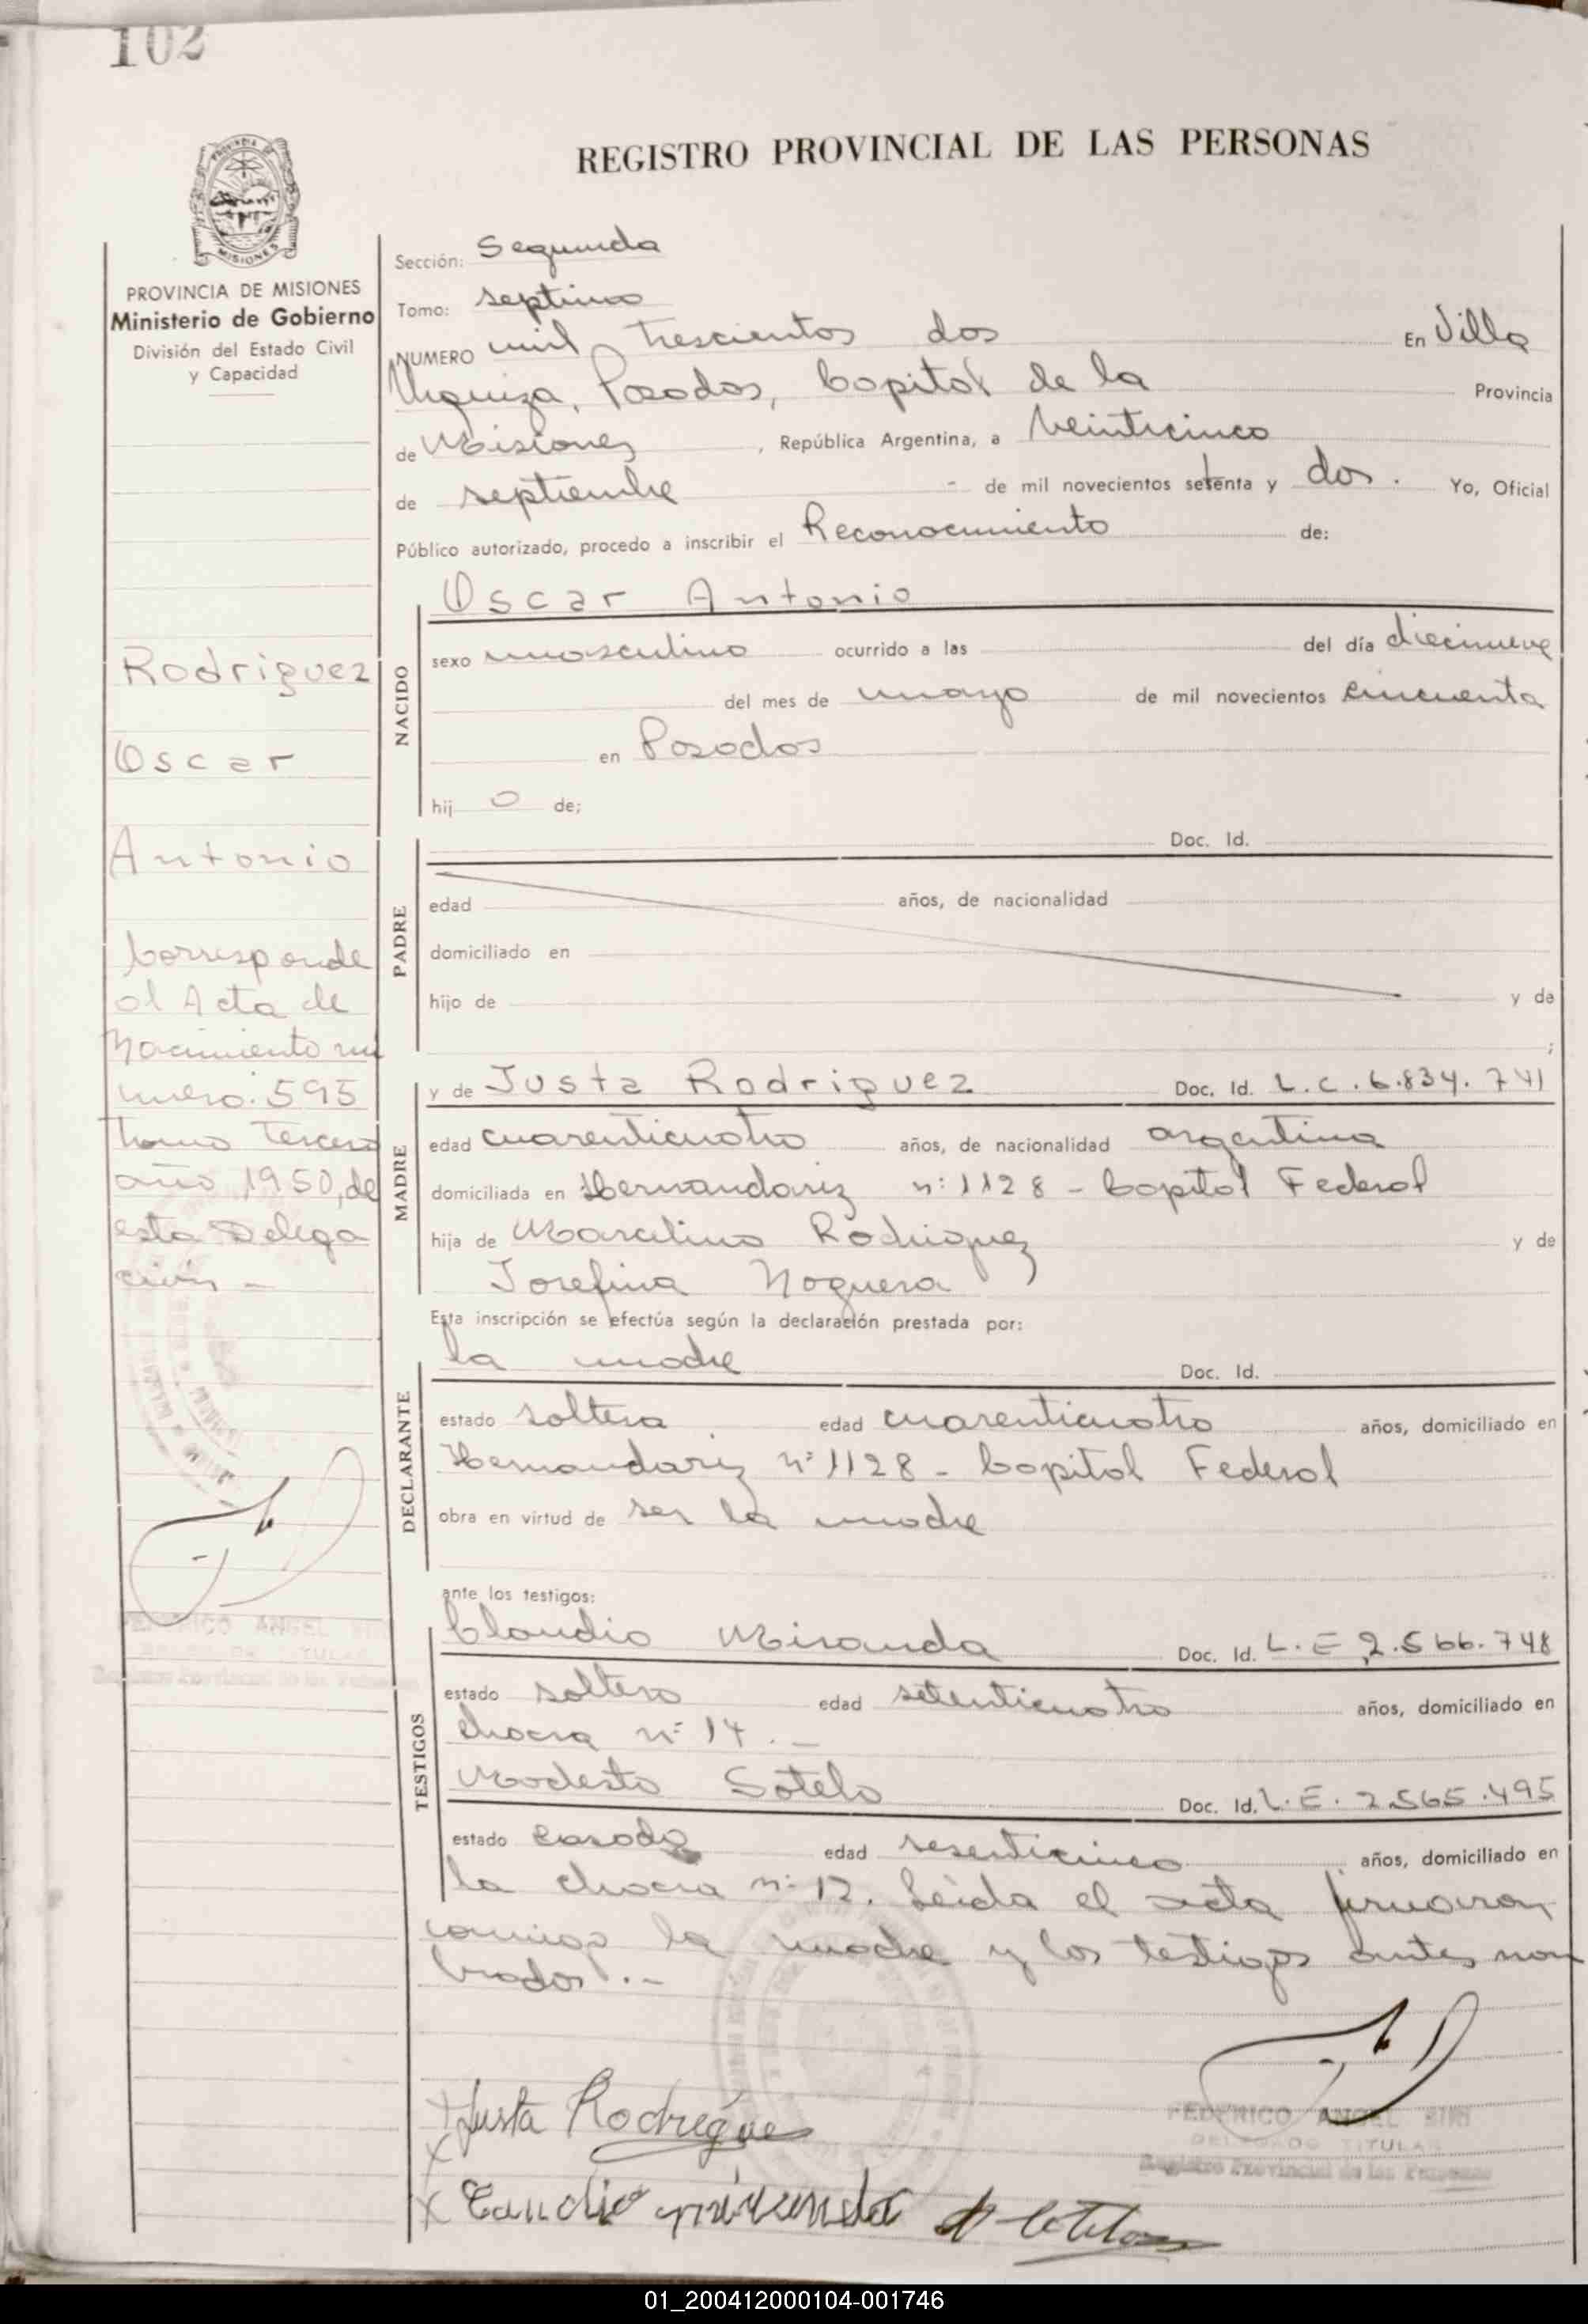 102
REGISTRO PROVINCIAL DE LAS PERSONAS
MISIONES
PROVINCIA DE MISIONES
Ministerio de Gobierno
División del Estado Civil
y Capacidad
Rodriguez
Oscar
Antonio
Corresponde
al Acta de
Nacimiento nú
mero. 595
tomo tercero
año 1950, de
esta Delega
ción -
FEDERICO ANGEL
TITULAR
Sección: Segunda
Tomo: septimo
NUMERO mil trescientos dos En Villa
Urquiza, Posadas, Capital de la Provincia
de Misiones, República Argentina, a veinticinco
de septiembre - de mil novecientos setenta y dos. Yo, Oficial
Público autorizado, procedo a inscribir el Reconocimiento de:
NACIDO
Oscar Antonio
sexo masculino ocurrido a las del día diecinueve
del mes de mayo de mil novecientos cincuenta
en Posadas
hij o de;
PADRE
Doc. Id.
edad años, de nacionalidad
domiciliado en
hijo de y de
;
MADRE
y de Justa Rodriguez Doc. Id. L.C. 6.834.741
edad cuarenticuatro años, de nacionalidad argentina
domiciliada en Hernandariz nº 1128 - Capital Federal
hija de Marcelino Rodriguez y de
Josefina Noguera
Esta inscripción se efectúa según la declaración prestada por:
DECLARANTE
la madre Doc. Id.
estado soltera edad cuarenticuatro años, domiciliado en
Hernandariz nº 1128 - Capital Federal
obra en virtud de ser la madre
ante los testigos:
TESTIGOS
Claudio Miranda Doc. Id. L.E 2.566.748
estado soltero edad setenticuatro años, domiciliado en
chacra nº 14. -
Modesto Sotelo Doc. Id. L.E. 2.565.495
estado casado edad sesenticinco años, domiciliado en
la chacra nº 12. Leída el acta firmaron
conmigo la madre y los testigos antes nom
brados. -
Justa Rodrégue
FEDERICO ANGEL
DELEGADO TITULAR
Registro Provincial de las Personas
01_200412000104-001746